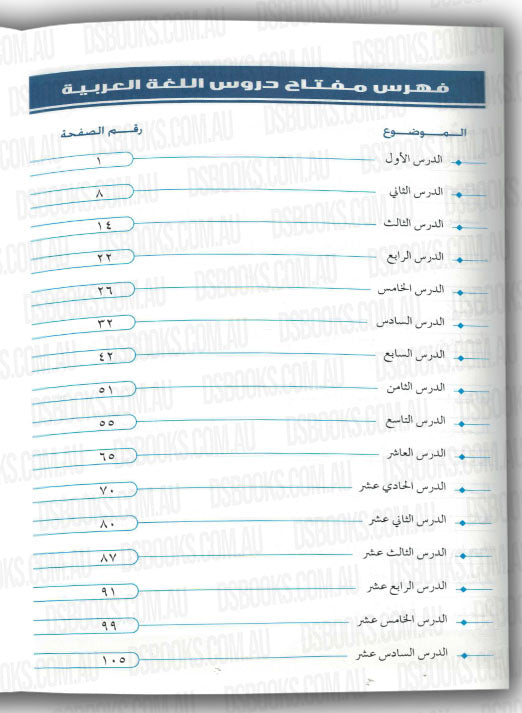 فهرس مفتاح دروس اللغة العربية
الموضوع رقم الصفحة
الدرس الأول ١
الدرس الثاني ٨
الدرس الثالث ١٤
الدرس الرابع ٢٢
الدرس الخامس ٢٦
الدرس السادس ٣٢
الدرس السابع ٤٢
الدرس الثامن ٥١
الدرس التاسع ٥٥
الدرس العاشر ٦٥
الدرس الحادي عشر ٧٠
الدرس الثاني عشر ٨٠
الدرس الثالث عشر ٨٧
الدرس الرابع عشر ٩١
الدرس الخامس عشر ٩٩
الدرس السادس عشر ١٠٥
DSBOOKS.COM.AU